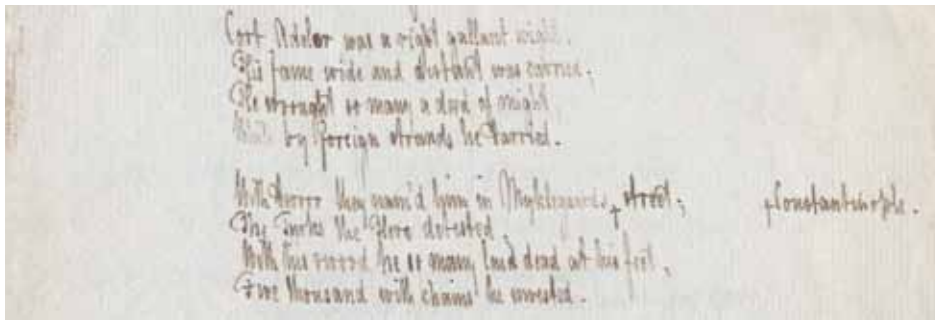 Cort Adeler was a right gallant wight.
His fame wide and distant was carried;
He wrought so many a deed of might
While by foreign strands he tarried.
With terror they nam'd him in Myklegaard's + street; + Constantinople.
The Turks the Hero detested
With his sword he so many laid dead at his feet,
Five thousand with chains he invested.